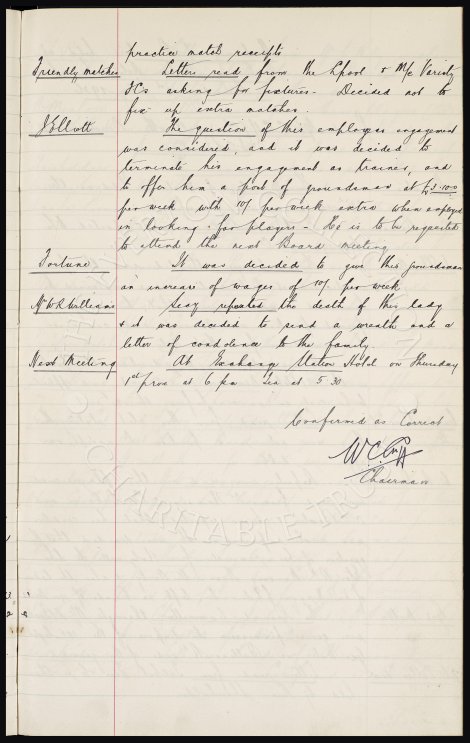 practice match receipts
Friendly matches Letters read from the Lpool & M/c Varsity
FCs asking for fixtures - Decided not to
fix up extra matches.
J Elliott The question of this employees engagement
was considered, and it was decided to
terminate his engagement as trainer, and
to offer him a post of groundsman at £3-10-0
per week with 10/ per week extra when employed
in looking for players - He is to be requested
to attend the next Board meeting
Fortune It was decided to give this groundsman
an increase of wages of 10/ per week
Mrs W R Williams Secy reported the death of this lady
& it was decided to send a wreath and a
letter of condolence to the family.
Next Meeting At Exchange Station Hotel on Thursday
1st prox at 6 pm Tea at 5-30
Confirmed as Correct
W.C. Cuff
Chairman
CHARITABLE TRUST